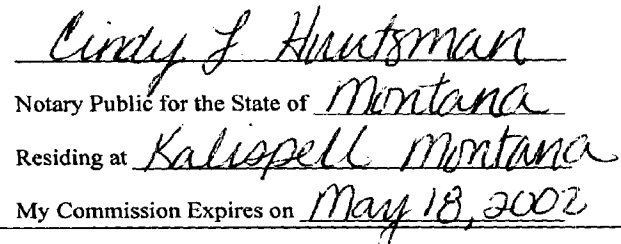 Cindy L Huntsman
Notary Public for the State of Montana
Residing at Kalispell Montana
My Commission Expires on May 18, 2002